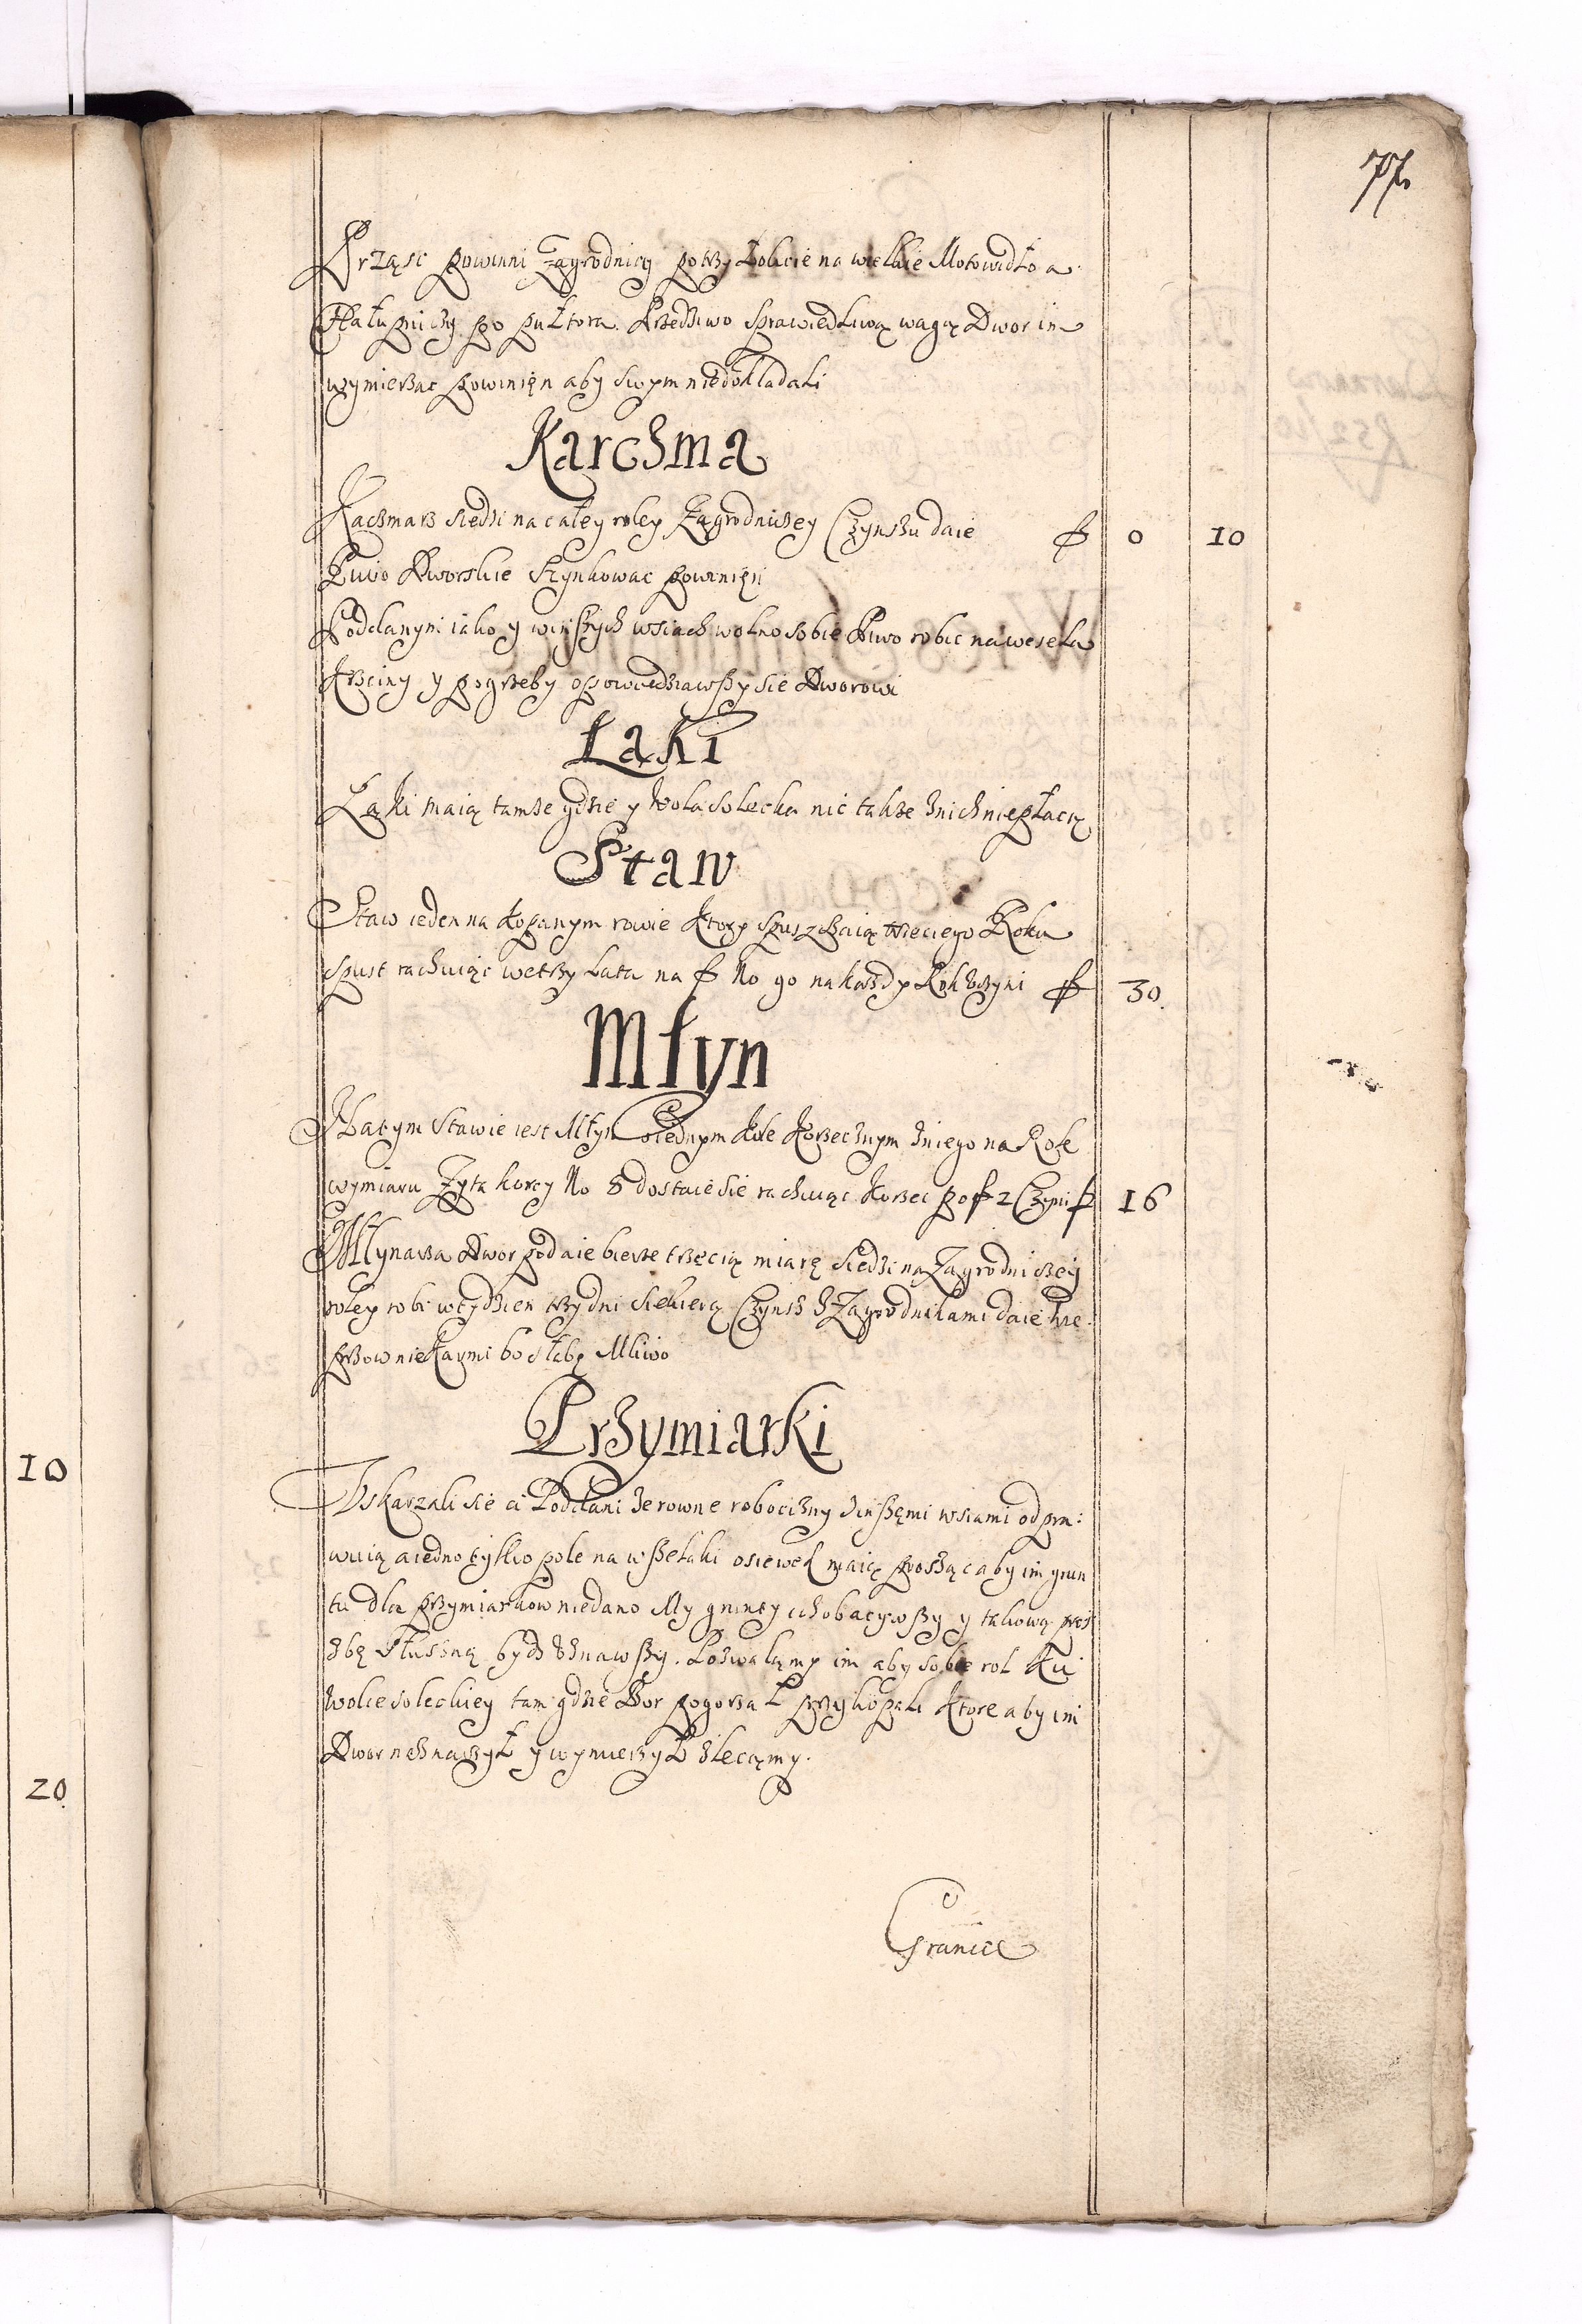 77.
Prząsc powinni Zagrodnicy potrzy Łokcie na wielkie Motowidło a
Chałupniczy po pułtora. Przedziwo sprawiedliwą wagą Dwor im
wymierzac powinięn aby swym niedokładali
Karczma
Kaczmarz siedzi na całey roley Zagrodniczey Czynszu daie f 0 10
Piwo Dworskie szynkowac powinięn
Poddanym iako y winszych wsiach wolno sobie Piwo robic na wesela
Krzciny y pogrzeby opowiedziawszy sie Dworowi
Łąki
Łąki maią tamze gdzie y Wola Solecka nic takze znich niepłacą
Staw
Staw ieden na kopanym rowie ktory spuszczaią trzeciego Roku
spust rachuiąc wetrzy lata na f No 90 na kazdy Rok uczyni f 30.
Młyn
Natym Stawie iest Młyn oiednym kole korzecznym zniego na Rok
wymiaru Zyta korcy No 8 dostaie sie rachuiąc korzec po f 2 Czyni f 16
Młynarza Dwor podaie bierze trzecią miarę siedzi na Zagrodniczey
roley robi wtydzien trzy dni siekierą Czynsz z Zagrodnikami daie Wie
przow nie karmi bo słabe Mliwo
Przymiarki
Uskarzali sie ci Poddani ze rowne robocizny zinszemi wsiami odpra:
wuią aiedno tylko pole na wszelaki osiewek maią prosząc aby im grun
tu dla przymiarkow niedano My grunty ich obaczywszy y takową proź
zbę słuszną bydz uznawszy. Pozwalamy im aby sobie rol ku
Wolce soleckiey tam gdzie Bor pogorzał przykopali ktore aby im
Dwor naznaczył y wymierzył zlecamy.
Granice
10
20.